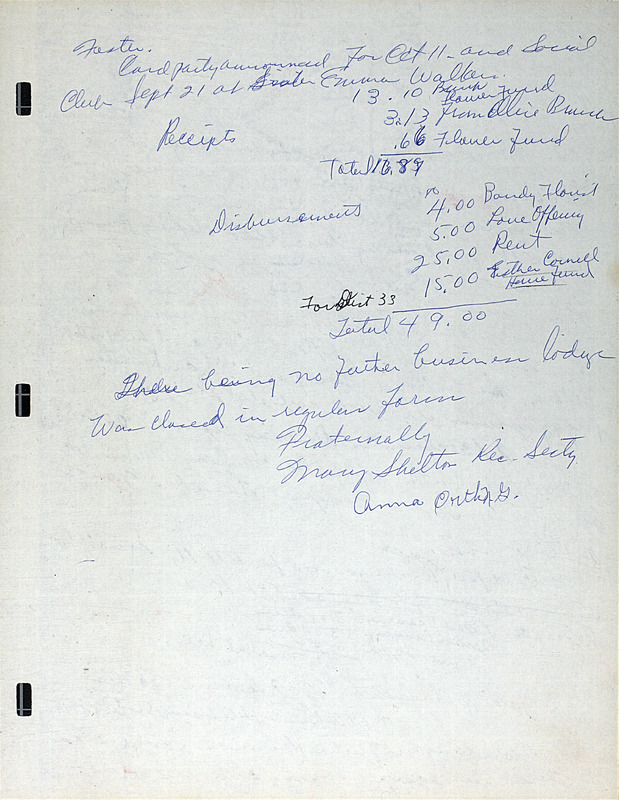 Foster.
Card party announced For Oct 11 - and Social
Club Sept 21 at Sister Emma Walker.
13.10 Bank
Flower Fund
3.13 From Alice Branch
Receipts
.66 Flower Fund
Total 16.89
Disbursements
no
4.00 Bandy Florist
5.00 Love Offering
25.00 Rent
15.00 Esther Cornell
Home Fund
For Dist 33
Total 49.00
There being no futher business lodge
Was closed in regular form
Fraternally
Mary Shelton Rec. Secty
Anna Orth N.G.